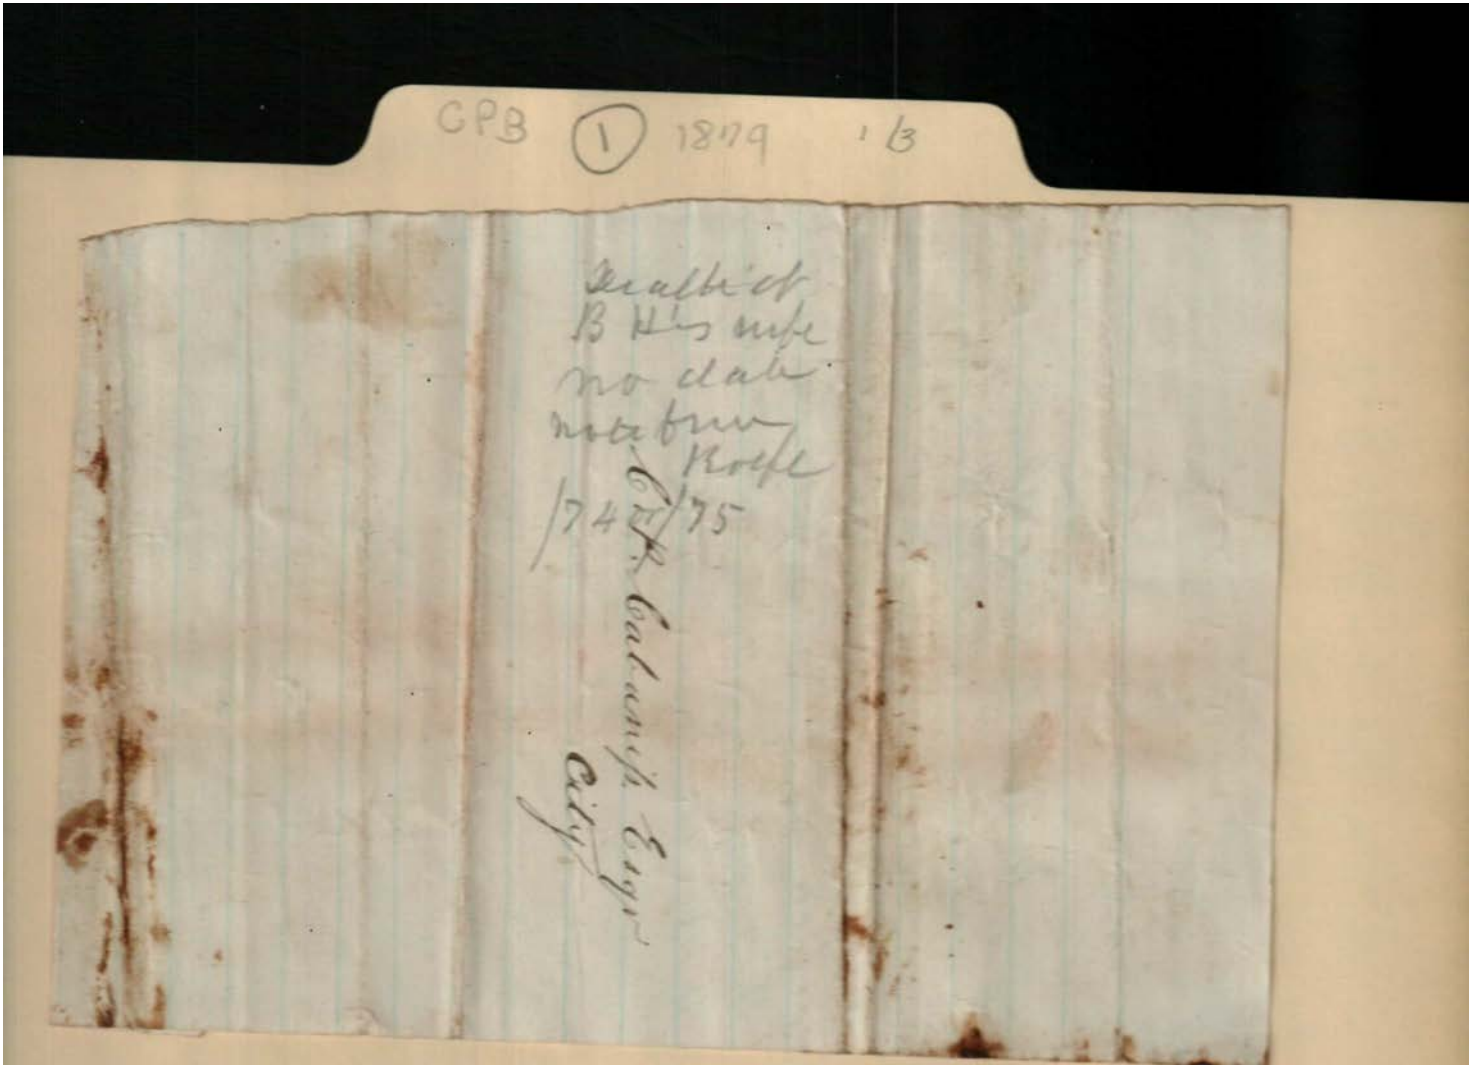 CPB 1 1879 1/3
Death of
B H's wife
no date
note from
Rolfe
/74 /75
C. H. Cabaniss Esqr
City